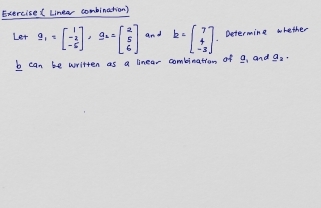 Exercise ( Linear combination)
Let a₁ = [1 -2 -5], a₂ = [2 5 6] and b = [7 4 -3]. Determine whether
b can be written as a linear combination of a₁ and a₂.